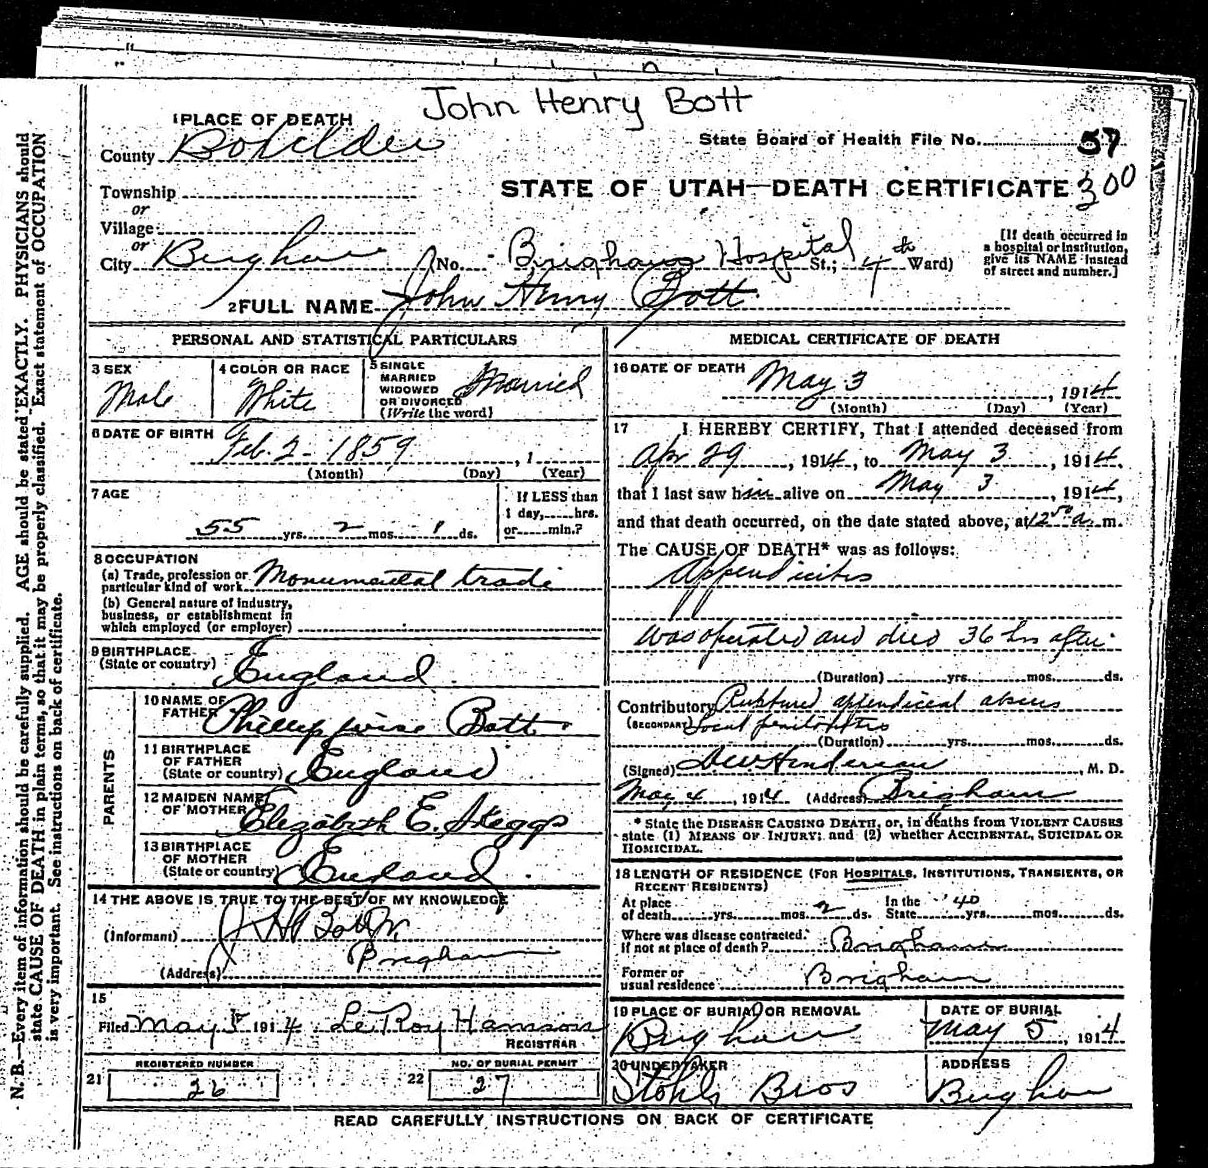 John Henry Bott
1 PLACE OF DEATH
County Boxelder
State Board of Health File No. 57
300
STATE OF UTAH—DEATH CERTIFICATE
Township
or
Village
or
City Brigham (No. Brigham Hospital St.; 4th Ward)
[If death occurred in
a hospital or institution,
give its NAME instead
of street and number.]
2 FULL NAME John Henry Bott
PERSONAL AND STATISTICAL PARTICULARS
3 SEX
Male
4 COLOR OR RACE
White
5 SINGLE
MARRIED
WIDOWED
OR DIVORCED
(Write the word)
Married
6 DATE OF BIRTH Feb. 2 - 1859, 1
(Month) (Day) (Year)
7 AGE
55 yrs. 2 mos. 1 ds.
If LESS than
1 day, hrs.
or min.?
8 OCCUPATION
(a) Trade, profession or
particular kind of work Monumental trade
(b) General nature of industry,
business, or establishment in
which employed (or employer)
9 BIRTHPLACE
(State or country) England
PARENTS
10 NAME OF
FATHER Phillip wise Bott
11 BIRTHPLACE
OF FATHER
(State or country) England
12 MAIDEN NAME
OF MOTHER Elizabeth E. Skeggs
13 BIRTHPLACE
OF MOTHER
(State or country) England
14 THE ABOVE IS TRUE TO THE BEST OF MY KNOWLEDGE
(Informant) J H Bott Jr.
(Address) Brigham
15
Filed May 5 1914 LeRoy Hansson
REGISTRAR
REGISTERED NUMBER
21 26
NO. OF BURIAL PERMIT
22 27
MEDICAL CERTIFICATE OF DEATH
16 DATE OF DEATH May 3, 1914
(Month) (Day) (Year)
17 I HEREBY CERTIFY, That I attended deceased from
Apr 29, 1914, to May 3, 1914,
that I last saw him alive on May 3, 1914,
and that death occurred, on the date stated above, at 12 50 a. m.
The CAUSE OF DEATH* was as follows:
Appendicitis
was operated and died 36 hrs after
(Duration) yrs. mos. ds.
Contributory Ruptured appendiceal abscess
(SECONDARY) Local
(Duration) yrs. mos. ds.
(Signed) Henderson, M. D.
May 4, 1914 (Address) Brigham
* State the DISEASE CAUSING DEATH, or, in deaths from VIOLENT CAUSES
state (1) MEANS OF INJURY; and (2) whether ACCIDENTAL, SUICIDAL OR
HOMICIDAL.
18 LENGTH OF RESIDENCE (FOR HOSPITALS, INSTITUTIONS, TRANSIENTS, OR
RECENT RESIDENTS)
At place
of death yrs. mos. 2 ds. In the
State 40 yrs. mos. ds.
Where was disease contracted,
if not at place of death? Brigham
Former or
usual residence Brigham
19 PLACE OF BURIAL OR REMOVAL
Brigham
DATE OF BURIAL
May 5, 1914
20 UNDERTAKER
Stohl Bros
ADDRESS
Brigham
READ CAREFULLY INSTRUCTIONS ON BACK OF CERTIFICATE
N. B.—Every item of information should be carefully supplied. AGE should be stated EXACTLY. PHYSICIANS should
state CAUSE OF DEATH in plain terms, so that it may be properly classified. Exact statement of OCCUPATION
is very important. See instructions on back of certificate.